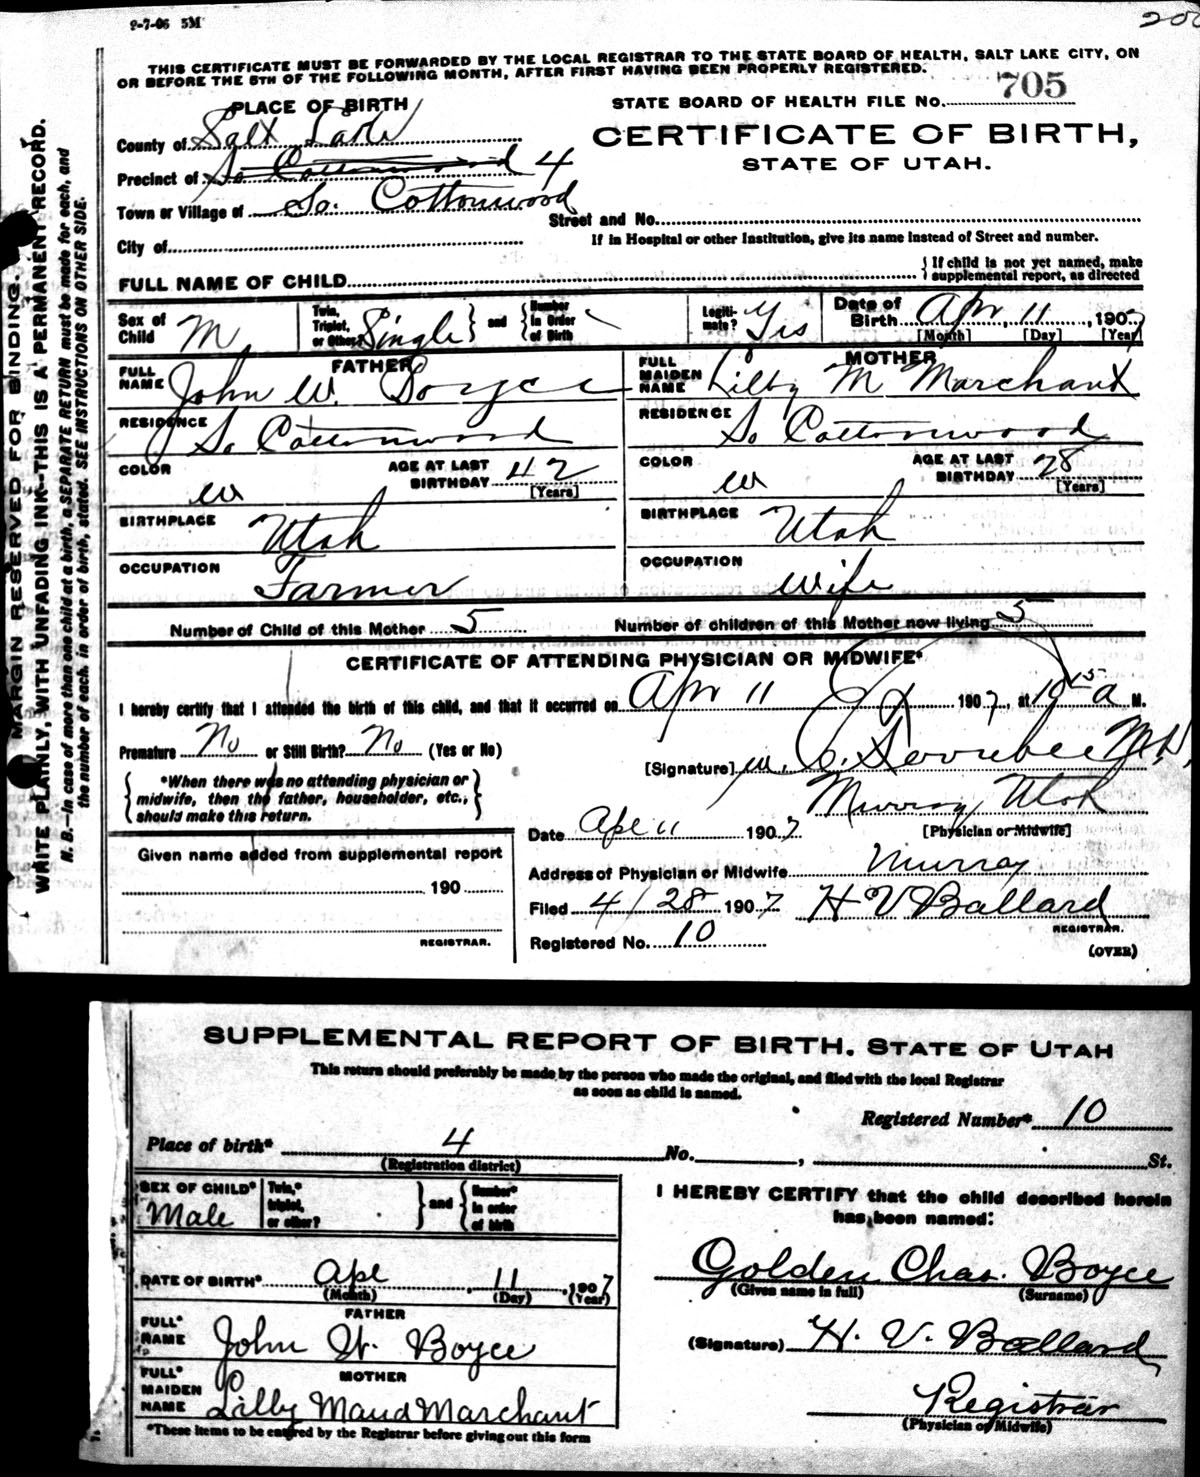 2-7-06 5M
200
THIS CERTIFICATE MUST BE FORWARDED BY THE LOCAL REGISTRAR TO THE STATE BOARD OF HEALTH, SALT LAKE CITY, ON
OR BEFORE THE 5TH OF THE FOLLOWING MONTH, AFTER FIRST HAVING BEEN PROPERLY REGISTERED.
MARGIN RESERVED FOR BINDING.
WRITE PLAINLY, WITH UNFADING INK—THIS IS A PERMANENT RECORD.
N. B.—In case of more than one child at a birth, a SEPARATE RETURN must be made for each, and
the number of each, in order of birth, stated. SEE INSTRUCTIONS ON OTHER SIDE.
PLACE OF BIRTH
STATE BOARD OF HEALTH FILE No. 705
County of Salt Lake
CERTIFICATE OF BIRTH,
STATE OF UTAH.
Precinct of So Cottonwood 4
Town or Village of So. Cottonwood
Street and No.
City of
If in Hospital or other Institution, give its name instead of Street and number.
FULL NAME OF CHILD
If child is not yet named, make
supplemental report, as directed
Sex of Child M
Twin, Triplet, or Other? Single and Number in Order of Birth
Legitimate? Yes
Date of Birth Apr 11, 1907
[Month] [Day] [Year]
FATHER
FULL NAME John W. Boyce
MOTHER
FULL MAIDEN NAME Lilby M Marchant
RESIDENCE So Cottonwood
RESIDENCE So Cottonwood
COLOR W AGE AT LAST BIRTHDAY 42 [Years]
COLOR W AGE AT LAST BIRTHDAY 28 [Years]
BIRTHPLACE Utah
BIRTHPLACE Utah
OCCUPATION Farmer
OCCUPATION Wife
Number of Child of this Mother 5 Number of children of this Mother now living 5
CERTIFICATE OF ATTENDING PHYSICIAN OR MIDWIFE*
I hereby certify that I attended the birth of this child, and that it occurred on Apr 11 1907, at 10 15 a M.
Premature No or Still Birth? No (Yes or No)
[Signature] W. C. M.D.
*When there was no attending physician or
midwife, then the father, householder, etc.,
should make this return.
Murray Utah
[Physician or Midwife]
Date Apr 11 1907
Given name added from supplemental report
190
REGISTRAR.
Address of Physician or Midwife Murray
Filed 4/28 1907 H V Ballard
REGISTRAR.
Registered No. 10
(OVER)
SUPPLEMENTAL REPORT OF BIRTH. STATE OF UTAH
This return should preferably be made by the person who made the original, and filed with the local Registrar
as soon as child is named.
Registered Number* 10
Place of birth* 4 No. , St.
(Registration district)
SEX OF CHILD* Male
Twin,* triplet, or other? and Number* in order of birth
I HEREBY CERTIFY that the child described herein
has been named:
DATE OF BIRTH* Apr 11, 1907
(Month) (Day) (Year)
Golden Chas. Boyce
(Given name in full) (Surname)
FATHER
FULL* NAME John W. Boyce
(Signature) H. V. Ballard
MOTHER
FULL* MAIDEN NAME Lilby Maud Marchant
Registrar
(Physician or Midwife)
*These items to be entered by the Registrar before giving out this form